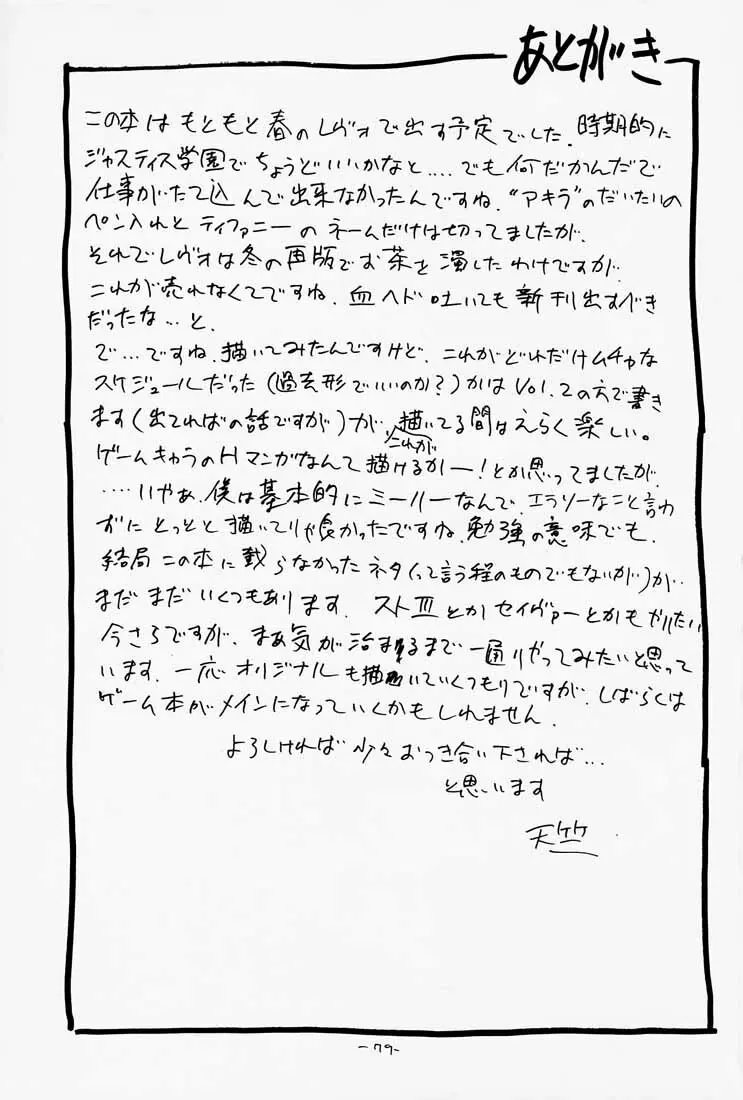 あとがき
この本はもともと春のレヴォで出す予定でした．時期的に
ジャスティス学園でちょうどいいかなと‥‥でも何だかんだで
仕事がたて込んで出来なかったんですね．“アキラ”のだいたいの
ペン入れとティファニーのネームだけは切ってましたが．
それでレヴォは冬の再版でお茶を濁したわけですが．
これが売れなくてですね．血ヘド吐いても新刊出すべき
だったな…と．
で…ですね．描いてみたんですけど．これがどれだけムチャな
スケジュールだった(過去形でいいのか?)かは Vol.2の方で書き
ます(出てればの話ですが)が、描いてる間はえらく楽しい。
これが
ゲームキャラのHマンガなんて描けるかー!とか思ってましたが．
‥‥いやあ．僕は基本的にミーハーなんで．エラソーなこと言わ
ずにとっとと描いてりゃ良かったですね．勉強の意味でも．
結局この本に載らなかったネタ(って言う程のものでもないが)が．
まだまだいくつもあります．ストⅢとかセイヴァーとかもやりたい
今さらですが．まぁ気が治まるまで一通りやってみたいと思って
います．一応オリジナルも描いていくつもりですが．しばらくは
ゲーム本がメインになっていくかもしれません．
よろしければ少々おつき合い下されば…
と思います
天竺
-79-